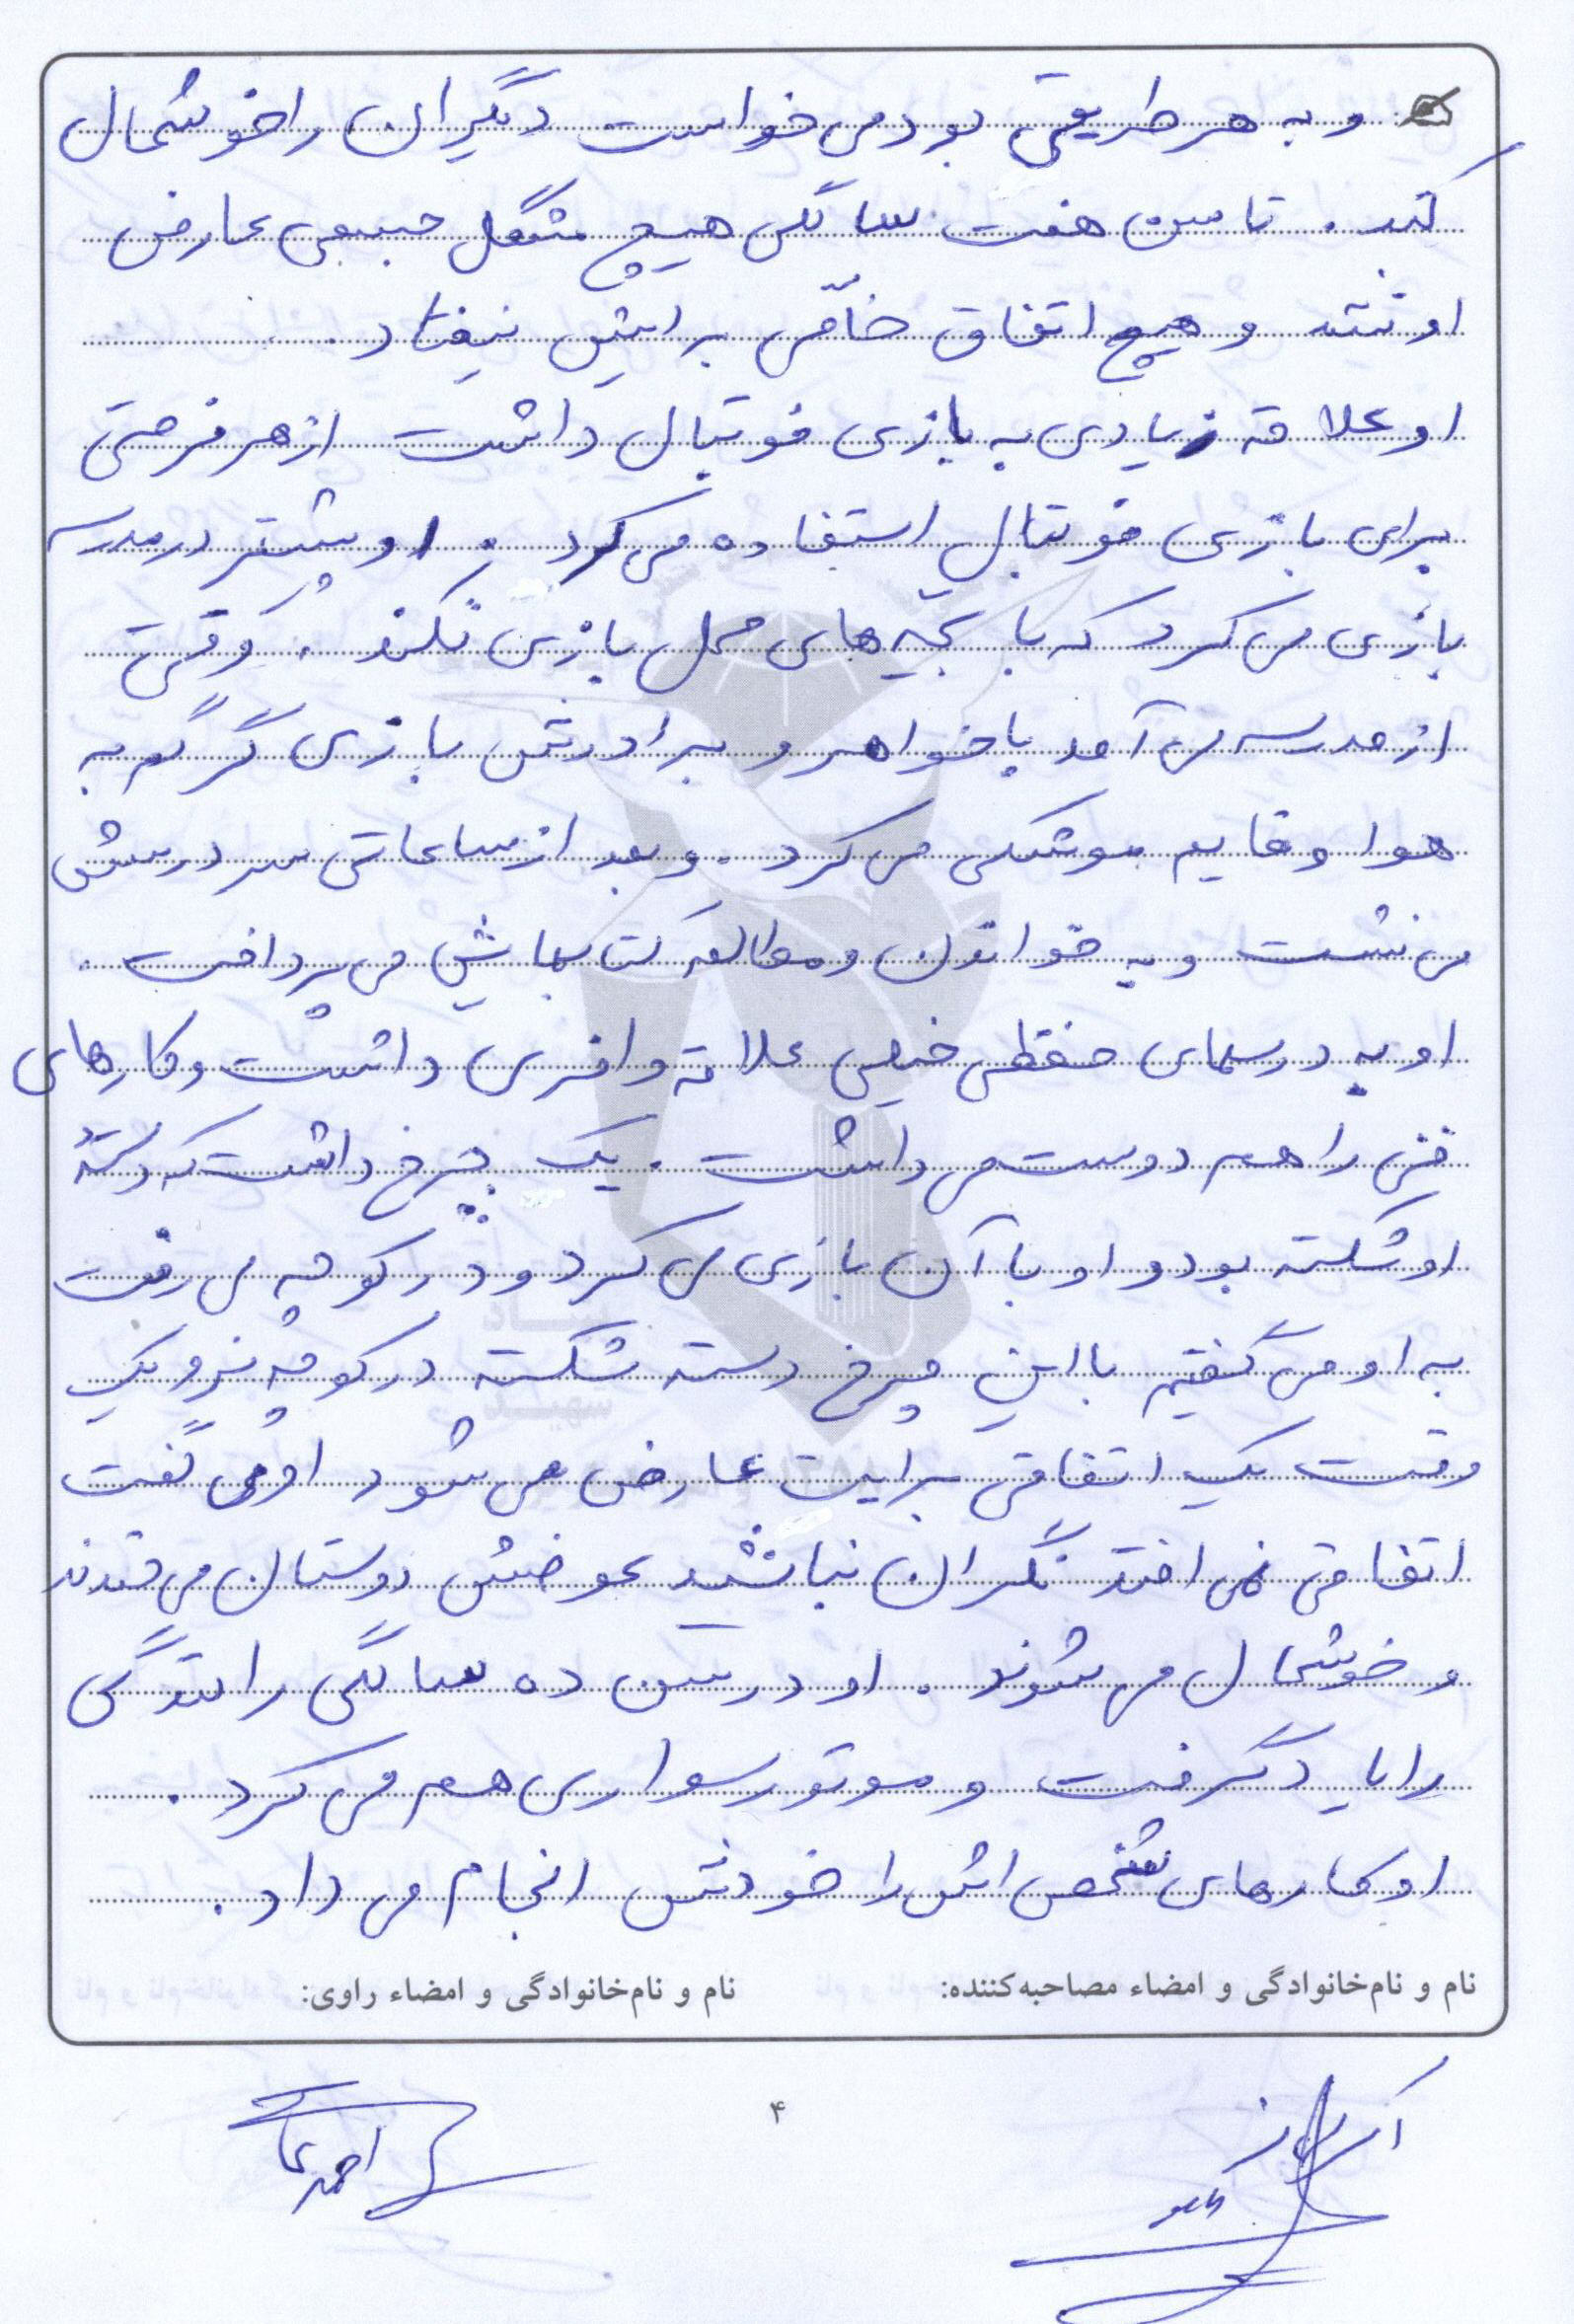 و به هر طریقی بود می خواست دیگران را خوشحال
کند . تا سن هفت سالگی هیچ مشکل جسمی عارض
او نشد و هیچ اتفاق خاصّی برایش نیفتاد .
او علاقه زیادی به بازی فوتبال داشت از هر فرصتی
برای بازی فوتبال استفاده می کرد . او بیشتر در مدرسه
بازی می کرد که با بچّه های محل بازی نکند . وقتی
از مدرسه می آمد با خواهر و برادرش بازی گرگم به
هوا و قایم موشکی می کرد . و بعد از ساعاتی سر درسش
می نشست و به خواندن و مطالعه کتابهایش می پرداخت .
او به درسهای حفظی خیلی علاقه وافری داشت و کارهای
فنی را هم دوست می داشت . یک چرخ داشت که دستهٔ
او شکسته بود و او با آن بازی می کرد و در کوچه می رفت
به او می گفتیم با این چرخ دسته شکسته در کوچه نرو یک
وقت یک اتفاقی برایت عارض می شود او می گفت
اتفاقی نمی افتد نگران نباشید عوضش دوستان می خندند
و خوشحال می شوند . او در سن ده سالگی رانندگی
را یاد گرفت و موتورسواری هم می کرد .
او کارهای شخصی اش را خودش انجام می داد .
نام و نام‌خانوادگی و امضاء مصاحبه‌کننده: نام و نام‌خانوادگی و امضاء راوی:
۴
احمد